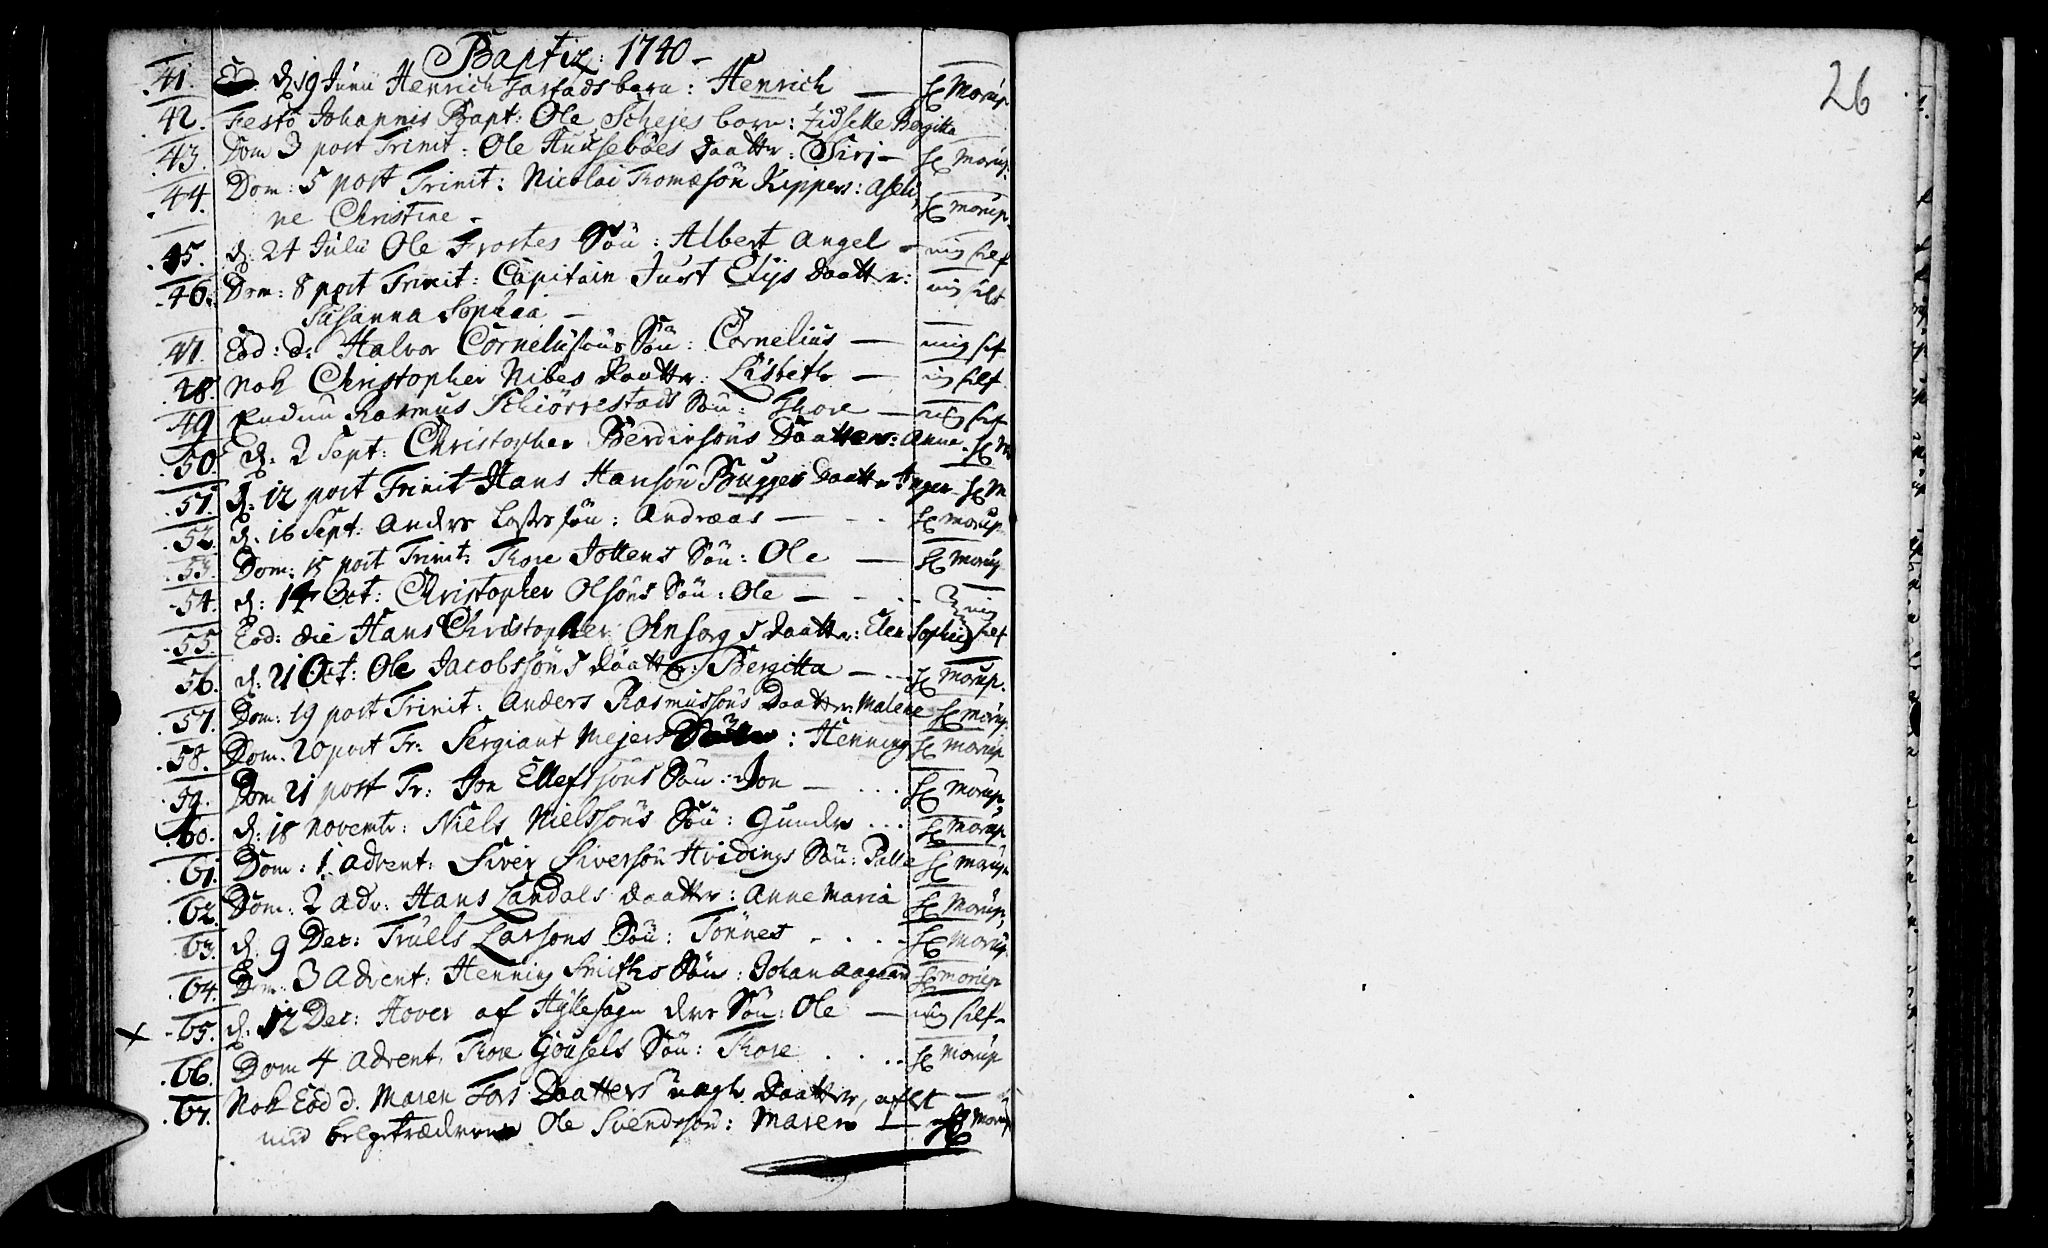 Baptiz: 1740 -
41. d: 19 Junii Henrich Tastads barn: Henrich — H Morup
42. Festo Johannis Bapt: Ole Schejes barn: Zidselle Bergitta
43. Dom 3 post Trinit: Ole Huusebøes Daatter: Siri - H Morup:
44. Dom: 5 post Trinit: Nicolai Thomæsøn Kippers: Aseli,
ne Christine - H Morup.
45. d: 24 Julii Ole Frostes Søn: Albert Angel - mig self
46. Dom: 8 post Trinit: Capitain Just Elys Daatter: mig self
Susanna Sophia -
47. Eod: d: Halvor Cornelisøns Søn: Cornelius — mig self
48. Nok Christopher Nibes Daatter: Lisbeth — mig self
49 Endnu Rasmus Schiørrestads Søn: Thore — mig self
50. d: 2 Sept: Christopher Berdinsøns Daatter: Anna. H M
51. d: 12 post Trinit Hans Hansøn Brugges Daatter Inger H M
52. d: 16 Sept: Andre søn: Andreas — H Morup
53. Dom: 15 post Trinit: Thore Jottens Søn: Ole — H Morup
54. d: 14 Oct: Christopher Olsøns Søn: Ole — mig
55. Eod: die Hans Christopher Ohnsorgs Daatter: Elen Sophia self
56. d: 21 Oct: Ole Jacobssøns Daatter: Bergitta — H Morup.
57. Dom: 19 post Trinit: Anders Rasmussøns Daatter Malene H Morup:
58. Dom. 20 post Tr: Sergiant Mejers Søn: Henning H Morup
59. Dom 21 post Tr: Jon Ellefsøns Søn: Jon — H Morup
60. d: 18 Novembr: Niels Nielssøns Søn: Gunder ... H Morup
61. Dom: 1 Advent: Siver Siversøn Hvidings Søn: Pelle H Morup
62. Dom: 2 Adv: Hans Landals Daatter: Anne Maria H Morup,
63. d. 9 Dec: Truels Larsøns Søn: Tønnes - H Morup
64. Dom: 3 Advent: Henning Smiths Søn: Johan Aagaard H Morup
x 65. d. 12 Dec: Hover af Hyllesogn deres Søn: Ole — mig self-
66. Dom 4 Advent. Thore Gousels Søn: Thore .... H Morup
67. Nok Eod d. Maren Tors Daatters uægte Daatter, aflet —
med Ole Svendsøn: Maren — H Morup
26